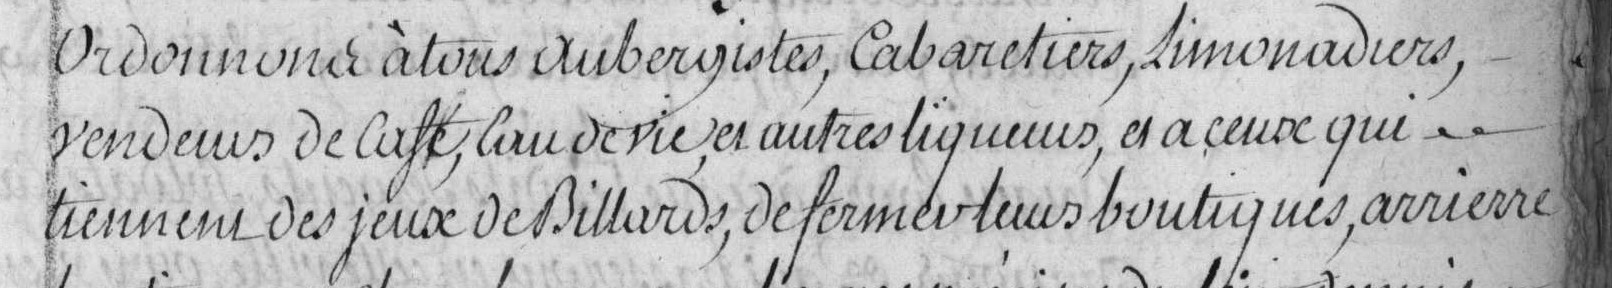 Ordonnons à tous Aubergistes, Cabaretiers, Limonadiers,
vendeurs de Caffé, Eau de vie, et autres liqueurs, et a ceux qui
tiennent des jeux de Billards, de fermer leurs boutiques, arrierre